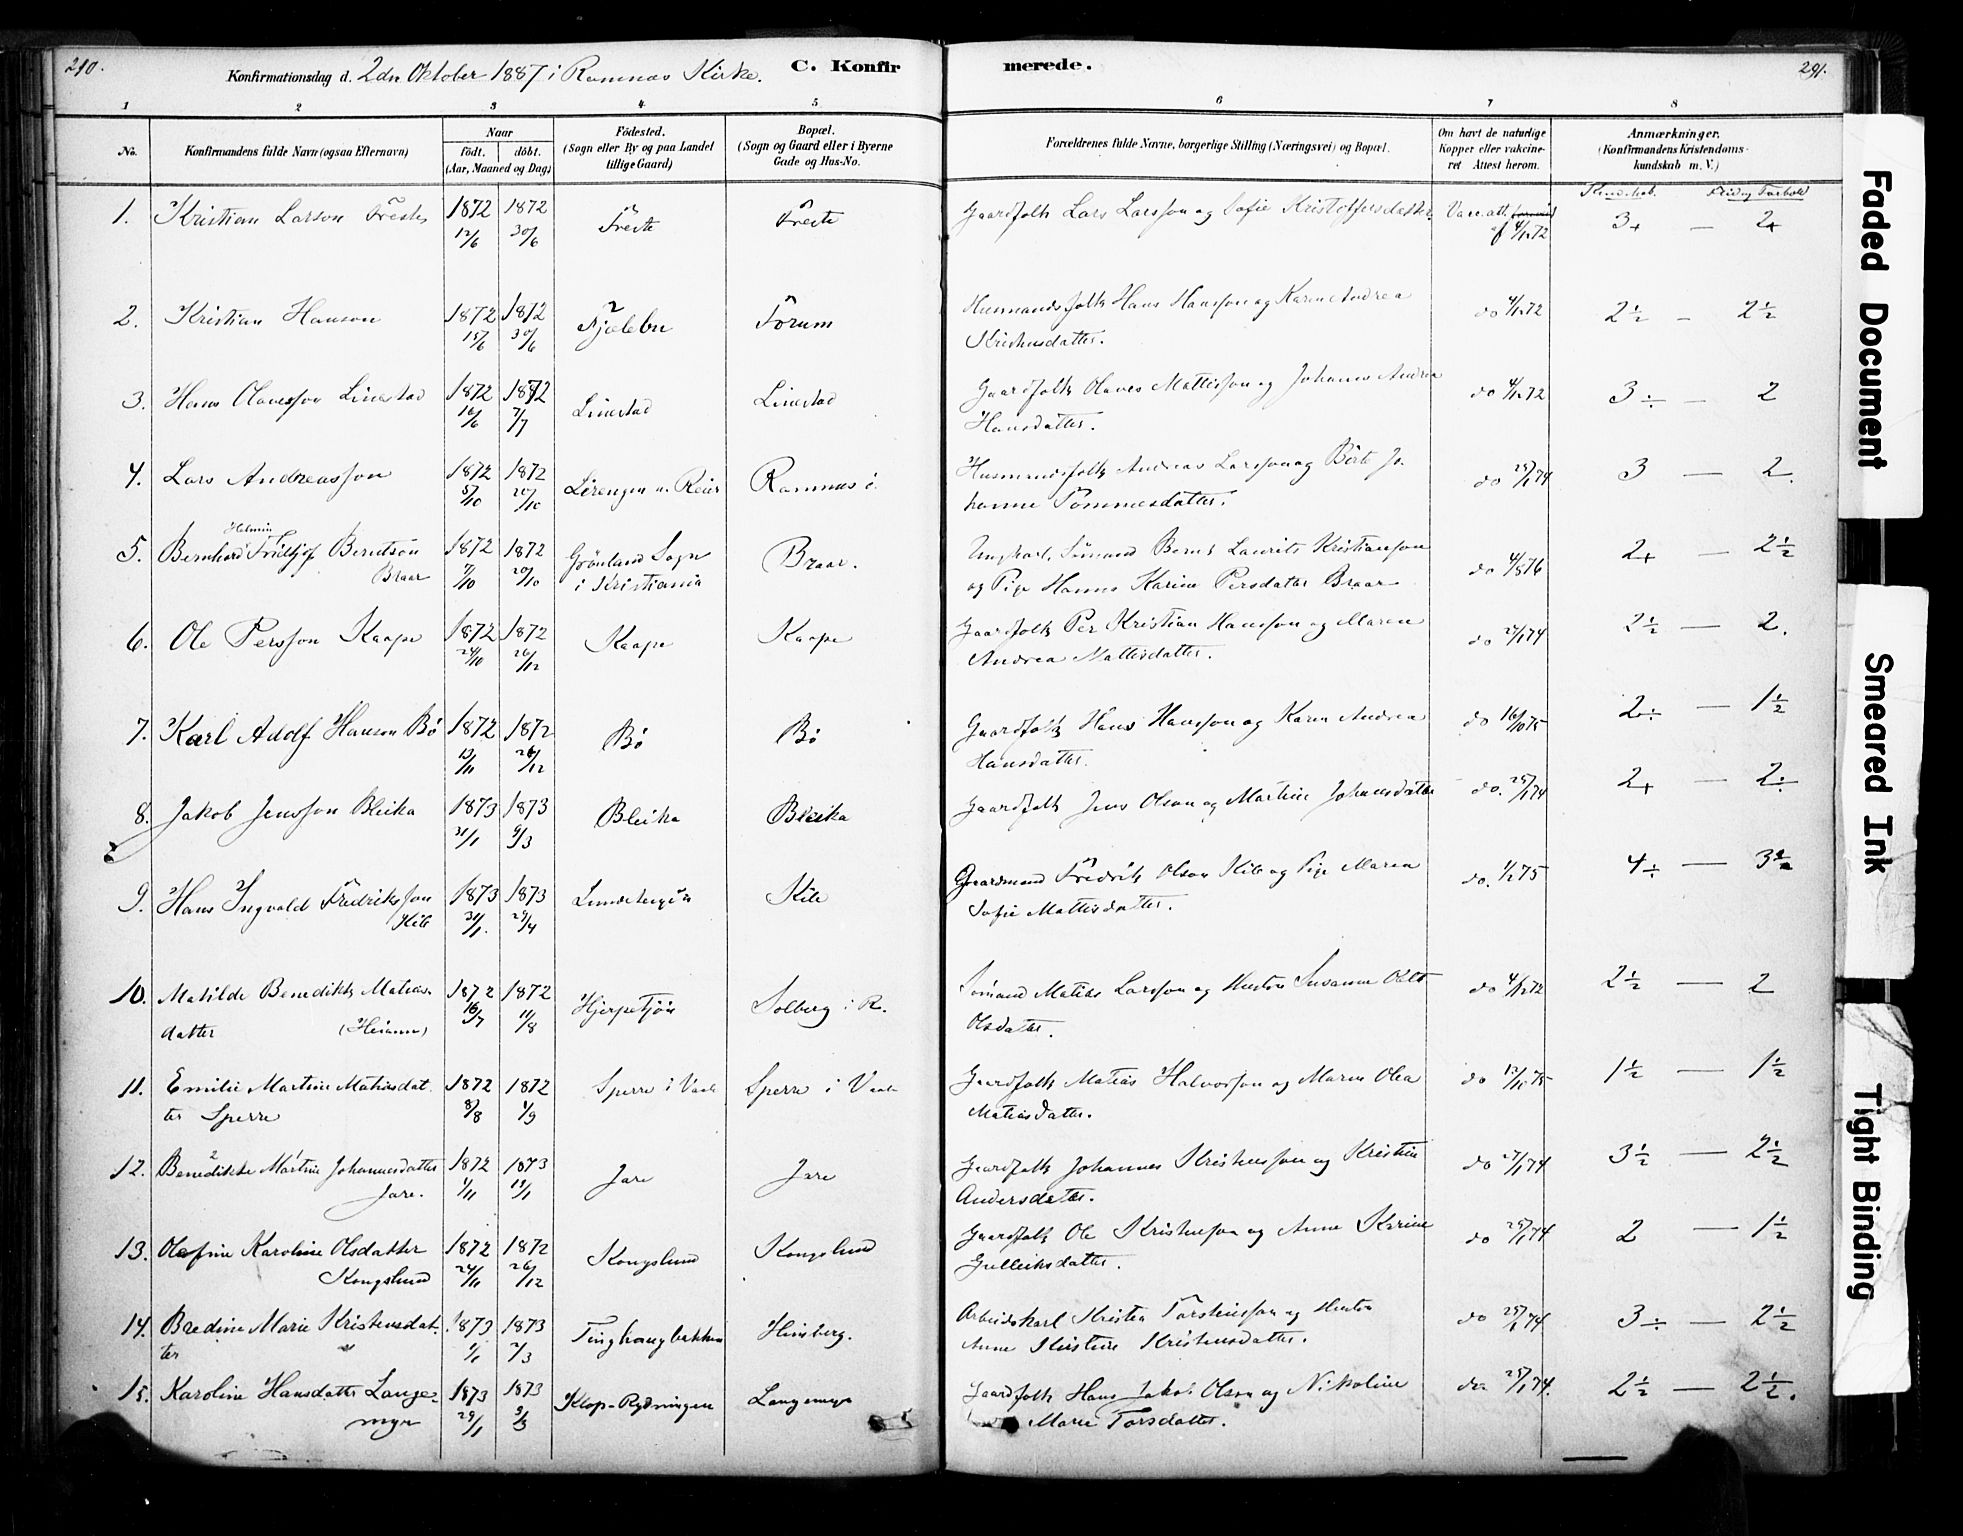 290.
Konfirmationsdag d. 2den Oktober 1887 i Ramnæs Kirke.
C. Konfir
merede.
291.
1 2 3 4 5 6 7 8
No.
Konfirmandens fulde Navn (ogsaa Efternavn)
Naar
født. døbt.
(Aar, Maaned og Dag)
Fødested.
(Sogn eller By og paa Landet
tillige Gaard)
Bopæl.
(Sogn og Gaard eller i Byerne
Gade og Hus-No.
Forældrenes fulde Navne, borgerlige Stilling (Næringsvei) og Bopæl.
Om havt de naturlige
Kopper eller vakcine-
ret Attest herom.
Anmærkninger.
(Konfirmandens Kristendoms-
kundskab m. V.)
Kundskab. Flid og Forhold
1. Kristian Larson Freste 1872 12/6 1872 30/6 Freste Freste Gaardfolk Lars Larsson og Sofie Kristoffersdatter Vacc. att. af 4/12 72 3+ — 2+
2. Kristian Hanson 1872 15/6 1872 30/6 Fjælebu Forum Husmandsfolk Hans Hansson og Karen Andrea
Kristensdatter. do 4/12 72 2½ — 2½
3. Hans Olavesson Linestad 1872 16/6 1872 7/7 Linestad Linestad Gaardfolk Olaves Mattisson og Johanne Andrea
Hansdatter. do 4/12 72 3÷ — 2
4. Lars Andreasson 1872 5/10 1872 20/10 Lørengen u. Reier Ramnæs Husmandsfolk Andreas Larsson og Birte Jo-
hanne Tommesdatter. do 25/1 74 3 — 2.
Helmin
5. Bernhard Fridtjof Berntson
Braar 1872 7/10 1872 20/10 Grønland Sogn
i Kristiania Braar. Ungkarl, Sømand Bernt Laurits Kristianson
og Pige Hanna Karine Persdatter Braar do 4/8 76 2+ — 2½
6. Ole Persson Kaape 1872 24/10 1872 26/12 Kaape Kaape Gaardfolk Per Kristian Hansson og Maren
Andrea Mattisdatter. do 27/1 74 2½ — 2.
7. Karl Adolf Hanson Bø 1872 13/11 1872 26/12 Bø Bø Gaardfolk Hans Hansson og Karen Andrea
Hansdatter. do 16/10 75 2÷ — 1½
8. Jakob Jensson Bleika 1873 31/1 1873 9/3 Bleika Bleika Gaardfolk Jens Olson og Martine Johansdatter do. 25/1 74 2+ — 2÷
9. Hans Ingvald Fredriksson
Kile 1873 31/1. 1873 29/4 Kile Gaardmand Fredrik Olson Kile og Pige Maren
Sofie Mattisdatter. do. 1/2 75 4÷ —
10. Matilde Benedikte Matias-
datter 1872 16/7 1872 11/8 Hjerpetjøn Solberg i R. Sømand Matias Larsson og Hustru Susanne
Olsdatter. do 4/12 72 2½ — 2
11. Emilie Martine Matiasdat-
ter Sperre 1872 8/8 1872 1/9 Sperre i Vaale Sperre i Vaale Gaardfolk Matias Halvorsson og Maren Olea
Matiasdatter. do 13/10 75 1½ — 1½
12. Benedikte Martine Johannesdatter
Jare. 1872 1/11 1873 12/1 Jare Jare Gaardfolk Johannes Kristensson og Kristine
Andersdatter. do 27/1 74 3½ — 2½
13. Olefine Karoline Olsdatter
Kongslund 1872 24/11 1872 26/12 Kongslund Kongslund Gaardfolk Ole Kristensson og Anne Karine
Gulleiksdatter. do 25/1 74 2 — 1½
14. Bredine Marie Kristensdat-
ter 1873 1/1 1873 2/3 Tinghaugbakken Himberg. Arbeidskarl Kristen Torstensson og Hustru
Anne Kirstine Kristensdatter. do 25/1 74 3÷ — 2½
15. Karoline Hansdatter Lange-
myr 1873 29/1 1873 9/3 Klop-Rydningen Langemyr Gaardfolk Hans Jakob Olson og Nikoline
Marie Torsdatter. do 25/1 74. 2½ — 2½.
Faded Document
Smeared Ink
Tight Binding